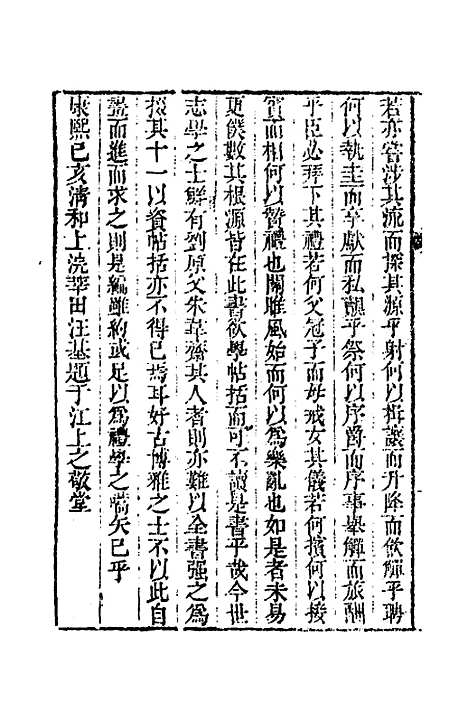 若亦嘗涉其流而探其源乎射何以揖讓而升降而飲觶乎聘
何以執圭而享獻而私覿乎祭何以序爵而序事舉觶而旅酬
乎臣必拜下其禮若何父冠子而母戒女其儀若何擯何以接
賓而相何以贊禮也關雎風始而何以為樂亂也如是者未易
更僕數其根源皆在此書欲學帖括而可不讀是書乎哉今世
志學之士鮮有劉原父朱韋齋其人者則亦難以全書強之為
掇其十一以資帖括亦不得已焉耳好古博雅之士不以此自
畫而進而求之則是編雖約或足以為禮學之嚆矢已乎
康熙己亥清和上浣莘田汪基題于江上之敬堂